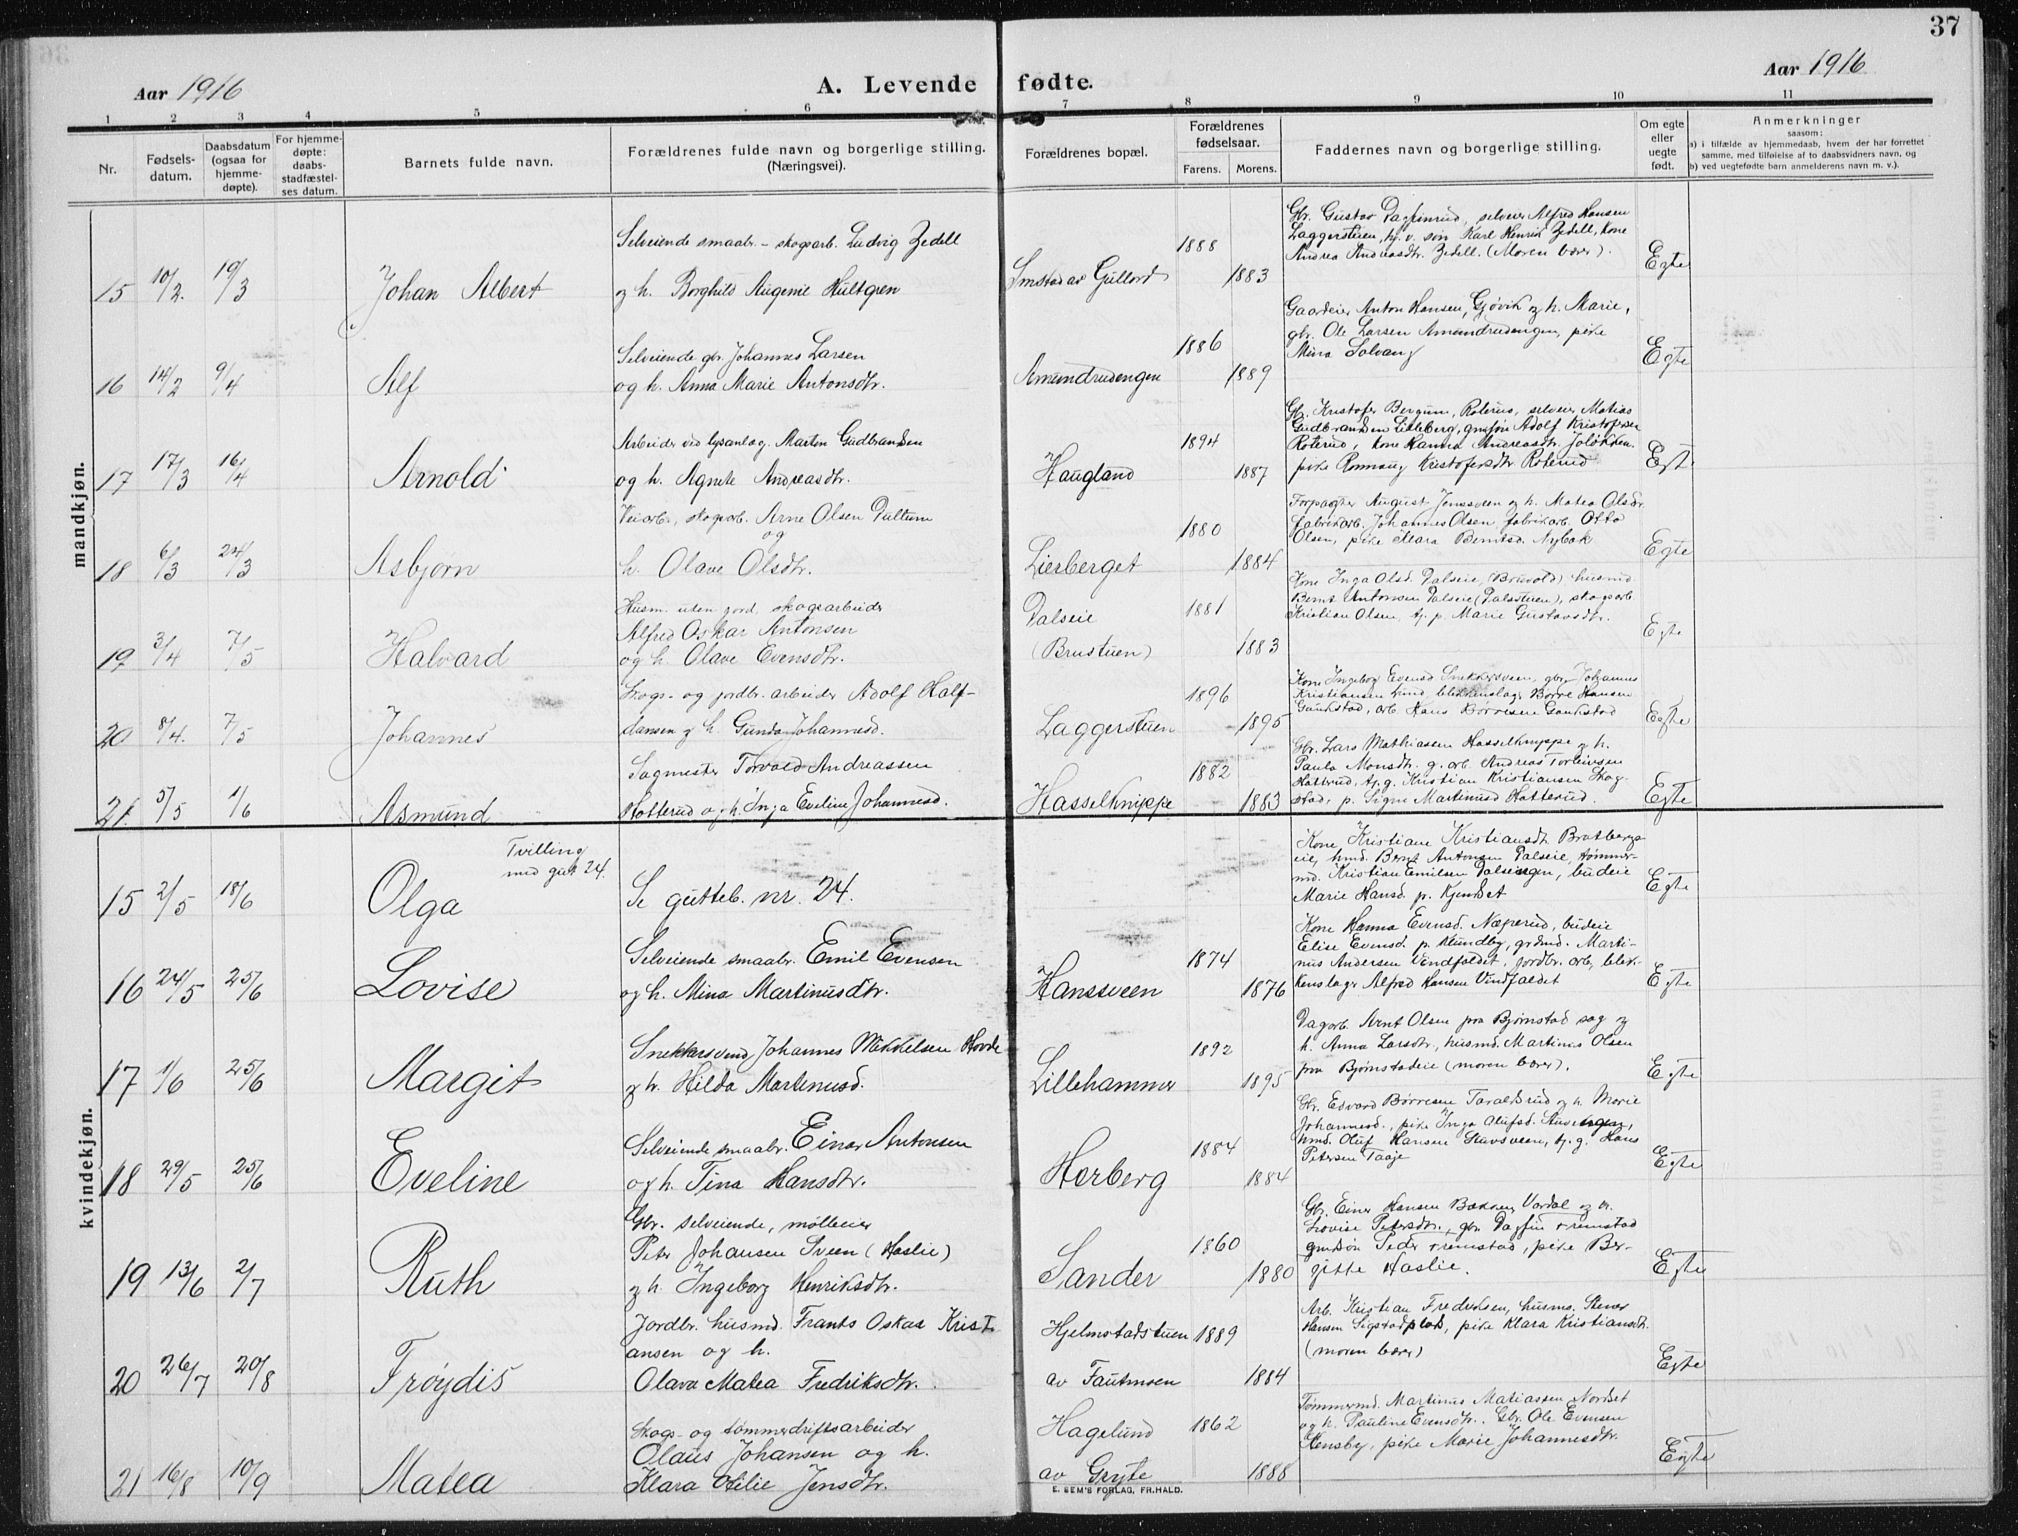 37
Aar 1916
A. Levende fødte.
Aar 1916
1 2 3 4 5 6 7 8 9 10 11
Nr.
Fødsels-
datum.
Daabsdatum
(ogsaa for
hjemme-
døpte).
For hjemme-
døpte:
daabs-
stadfæstel-
ses datum.
Barnets fulde navn.
Forældrenes fulde navn og borgerlige stilling.
(Næringsvei).
Forældrenes bopæl.
Forældrenes
fødselsaar.
Farens. Morens.
Faddernes navn og borgerlige stilling.
Om egte
eller
uegte
født.
Anmerkninger
saasom:
a) i tilfælde av hjemmedaab, hvem der har forrettet
samme, med tilføielse av to daabsvidners navn, og
b) ved uegtefødte barn anmelderens navn m. v.).
mandkjøn.
15 10/2. 19/3 Johan Albert
Selveiende smaabr. - skogsarb. Ludvig Zedell
og h. Borghild Augenie Hultgren
Smstad av Gullord
1888 1883
Gbr. Gustav Dagfinrud, selveier Alfred Hansen
Laggerstuen, tj. v. søn Karl Henrik Zedell, kone
Andrea Andreasdtr. Zedell. (Moren bærer).
Egte
16 14/2 9/4 Alf
Selveiende gbr. Johannes Larsen
og h. Anna Marie Antonsdtr.
Amundrudengen
1886 1889
Gaardeier Anton Hansen, Gjøvik og h. Marie,
gbr. Ole Larsen Amundrudengen, pike
Mina Solvang
Egte
17 17/3 16/4 Arnold
Arbeider ved lysanlæg. Martin Gudbrandsen
og h. Agnete Andreasdtr.
Haugland
1894 1887
Gbr. Kristofer Bergum, Roterud, selveier Matias
Gudbrandsen Lilleberg, gmsøn Adolf Kristofersen
Roterud, kone Hanna Andreasdtr.
pike Ronnaug Kristofersdtr. Roterud
Egte
18 6/3 24/3 Asbjørn
Veiarb., skogsarb. Arne Olsen Dultum
og
h. Olave Olsdtr.
Lierberget
1880 1884
Forpagter August Jensveen og h. Matea Olsdr.
fabrikarb. Johannes Olsen, fabrikarb. Otto
Olsen, pike Klara Berntsd. Nybak
Egte
19 3/4 7/5 Halvard
Husm. uten jord, skogsarbeider
Alfred Oskar Antonsen
og h. Olave Evensdtr.
Dalseie
(Brustuen)
1881 1883
Kone Inga Olsd. Dalseie, (Bruvold), husmd.
Bernt Antonsen Dalseie (Dalstuen), skogsarb
Kristian Olsen, tj. p. Marie Gustavsdtr.
Egte
20 8/4. 7/5 Johannes
Skogs- og jordbr. arbeider Adolf Half-
dansen og h. Gunda Johannesd.
Laggerstuen
1896 1895
Kone Ingeborg Evensd Snekkersveen, gbr. Johannes
Kristiansen Lund, blikkenslager Børre Hansen
Gaukstad, arb. Hans Børresen Gaukstad
Egte
21. 5/5 1/6 Asmund
Sagmester Torvald Andreassen
Hotterud og h. Inga Eveline Johannesd.
Hasselknippe
1882 1883
Gbr. Lars Mathiassen Hasselknippe og h.
Paula Monsdtr. g. arb. Andreas Torleivsen
Hotterud, tj. g. Kristian Kristiansen Skog-
stad, p. Signe Martinusd Hotterud.
Egte
kvindekjøn.
15 2/5 18/6 Olga
Tvilling
med gut 24.
Se gutteb. nr. 24.
Kone Kristiane Kristiansdt. Bratbergs-
eie, hmd. Bernt Antonsen Dalseie, tømmer-
md. Kristian Emilsen Dalsengen, budeie
Marie Hansd. p. Kjendset
Egte
16 24/5 25/6 Lovise
Selveiende smaabr. Emil Evensen
og h. Mina Martinusdtr.
Hanssveen
1874 1876
Kone Hanna Evensd. Næperud, budeie
Elise Evensd. p. Klundby, grdmd. Marti-
nus Andersen Vindfaldet, jordbr. arb., blik-
kenslager Alfred Hansen Vindfaldet
Egte
17 1/6 25/6 Margit
Snekkersvend Johannes Mikkelsen Hovde
og h. Hilda Martinusd.
Lillehammer
1892 1895
Dagarb. Arnt Olsen fra Bjørnstad sag og
h. Anna Larsdtr., husmd. Martinus Olsen
fra Bjørnstadeie (moren bærer).
Egte
18 29/5 25/6 Eveline
Selveiende smaabr. Einar Antonsen
og h. Tina Hansdtr.
Herberg
1884 1884
Gbr. Edvard Børresen Taraldsrud og h. Marie
Johannesd., pike Inga Olufsd.
hmd. Oluf Hansen Stavsveen, tj. g. Hans
Petersen Taaje
Egte
19 13/6 2/7 Ruth
Gbr. selveiende, mølleeier
Peter Johansen Sveen (Haslie)
og h. Ingeborg Henriksdtr.
Sander
1860 1880
Gbr. Einer Hansen Bakken, Vardal og h.
Lovise Petersdtr., gbr. Dagfin Fremstad
gmdsøn Peder Fremstad, pike Ber-
gitte Haslie.
Egte
20 26/7 20/8 Frøydis
Jordbr. husmd. Frants Oskar Krist
ansen og h.
Olava Matea Fredriksdtr.
Hjelmstadstuen
av Fautmoen
1889 1884
Arb. Kristian Fredriksen, husmd. Stener
Hansen Sigstadplads, pike Klara Kristiansdt.
(moren bærer)
Egte
21 16/8 10/9 Matea
Skogs- og tømmerdriftsarbeider
Olaus Johansen og h.
Klara Otilie Jensdtr.
Hagelund
av Gryte
1862 1888
Tømmermd. Martinus Matiassen Nordset
og h. Pauline Evensdtr. Gbr. Ole Evensen
Hensby, pike Marie Johannesdtr.
Egte
E. SEM'S FORLAG, FR.HALD.